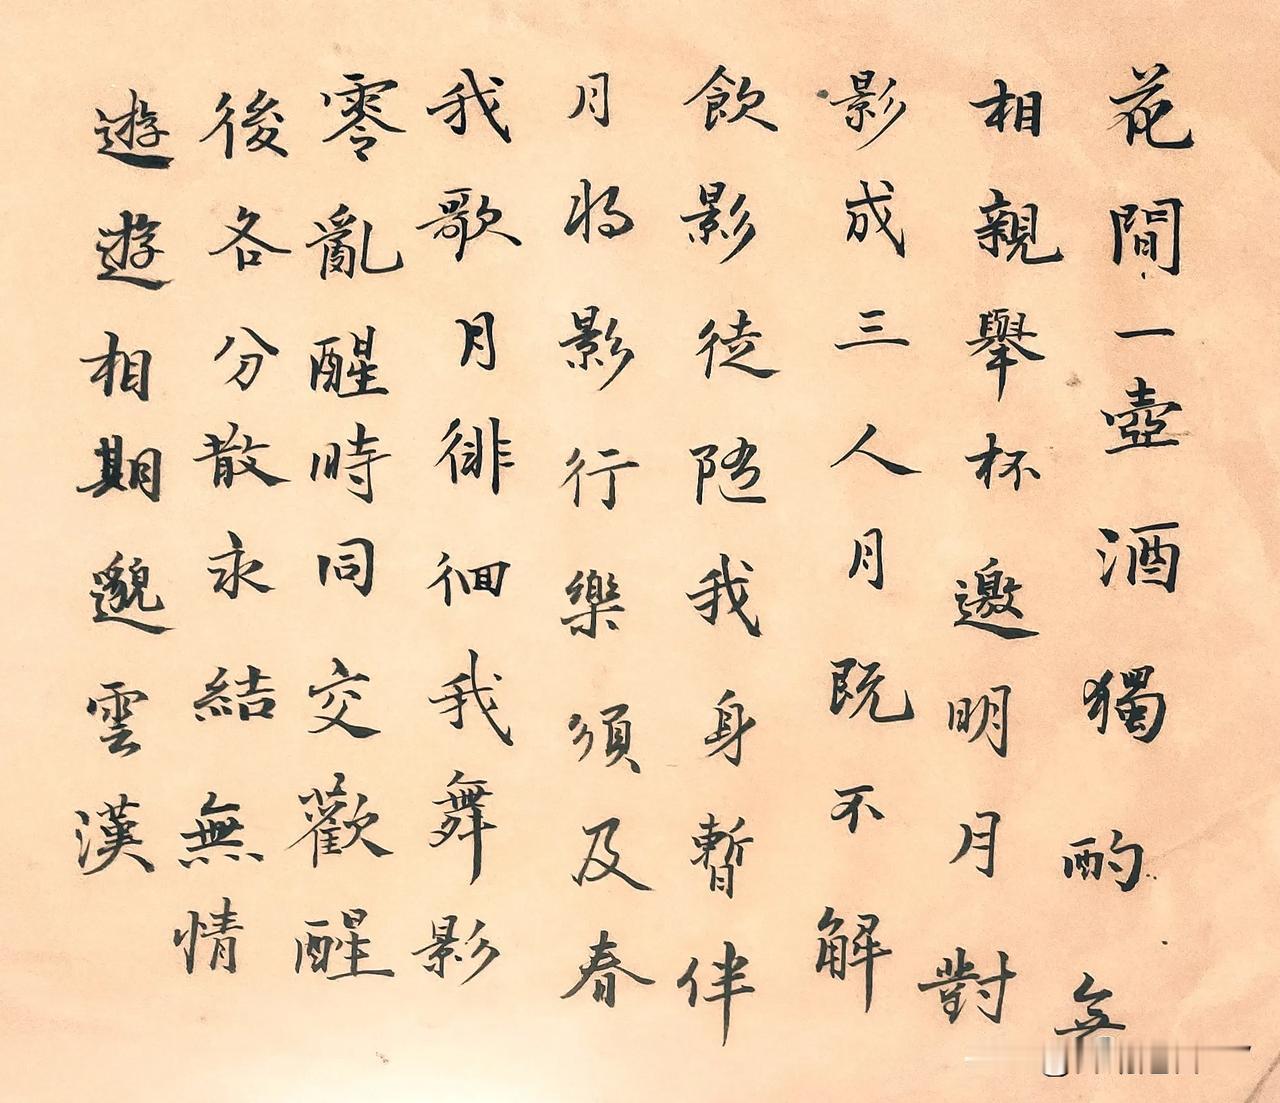 花間一壺酒獨酌無
相親舉杯邀明月對
影成三人月既不解
飲影徒隨我身暫伴
月將影行樂須及春
我歌月徘徊我舞影
零亂醒時同交歡醒
後各分散永結無情
遊遊相期邈雲漢